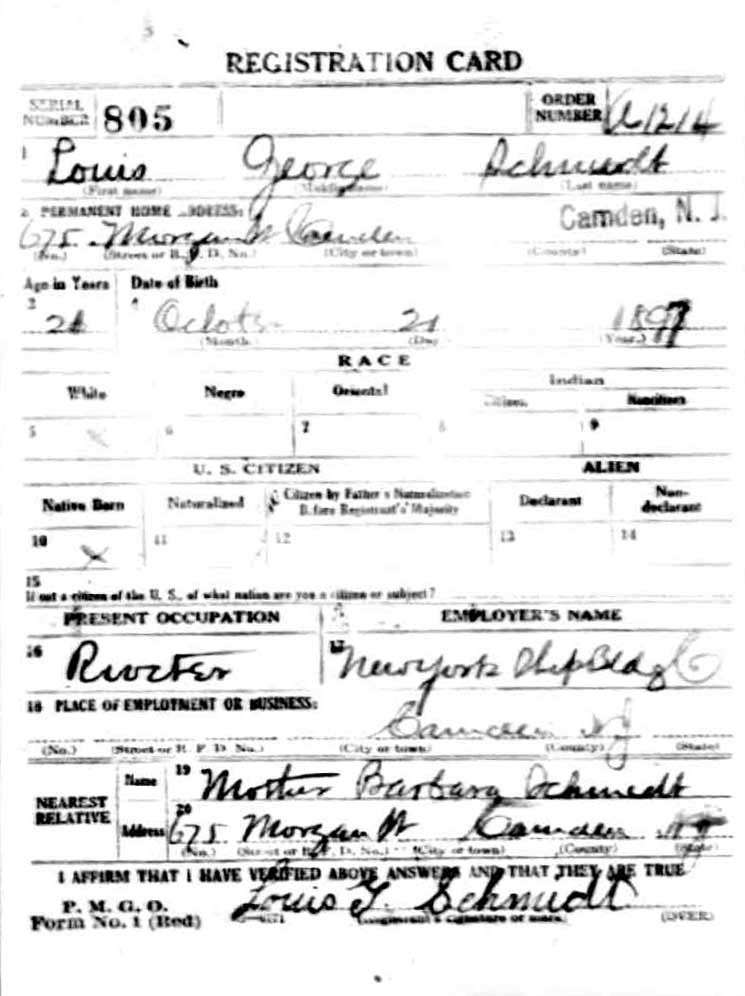 REGISTRATION CARD
SERIAL NUMBER 805 ORDER NUMBER A1214
1 Louis George Schmidt
(First name) (Middle name) (Last name)
2 PERMANENT HOME ADDRESS: Camden, N. J.
675 Morgan St Camden
(No.) (Street or R. F. D. No.) (City or town) (County) (State)
Age in Years Date of Birth
3 21 4 October 21 1897
(Month) (Day) (Year.)
RACE
White Negro Oriental Indian
Citizen. Noncitizen
5 X 6 7 8 9
U. S. CITIZEN ALIEN
Native Born Naturalized Citizen by Father's Naturalization Before Registrant's Majority Declarant Non-declarant
10 X 11 12 13 14
15
If not a citizen of the U. S., of what nation are you a citizen or subject?
PRESENT OCCUPATION EMPLOYER'S NAME
16 Riveter 17 New York Ship Bldg Co
18 PLACE OF EMPLOYMENT OR BUSINESS:
Camden NJ
(No.) (Street or R. F. D. No.) (City or town) (County) (State)
NEAREST RELATIVE Name 19 Mother Barbara Schmidt
Address 20 675 Morgan St Camden NJ
(No.) (Street or R. F. D. No.) (City or town) (County) (State)
I AFFIRM THAT I HAVE VERIFIED ABOVE ANSWERS AND THAT THEY ARE TRUE
P. M. G. O.
Form No. 1 (Red) Louis G. Schmidt
(Registrant's signature or mark) (OVER)